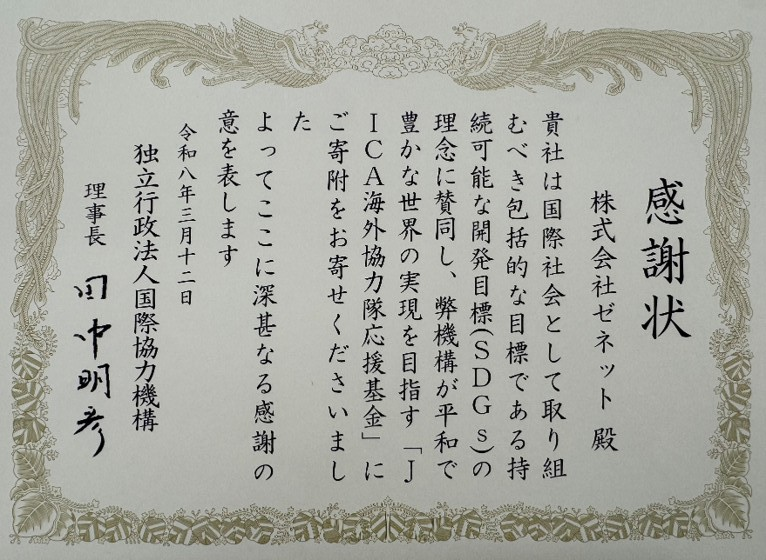 感謝状
株式会社ゼネット 殿
貴社は国際社会として取り組
むべき包括的な目標である持
続可能な開発目標(SDGs)の
理念に賛同し、弊機構が平和で
豊かな世界の実現を目指す「J
ICA海外協力隊応援基金」に
ご寄附をお寄せくださいまし
た
よってここに深甚なる感謝の
意を表します
令和八年三月十二日
独立行政法人国際協力機構
理事長 田中明彦